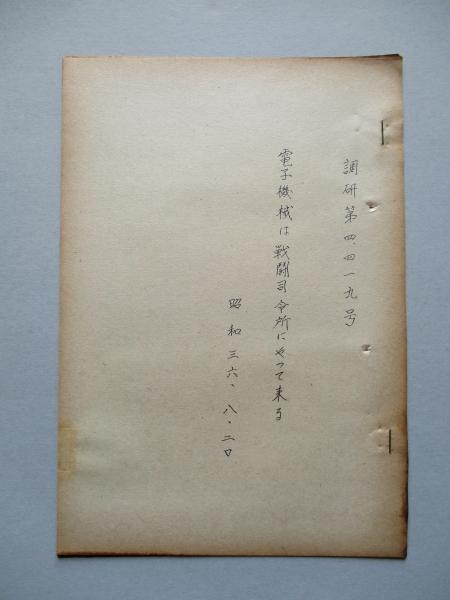 調研第四、四一九号
電子機械は戦闘司令所にやって来る
昭和三六、八、二〇